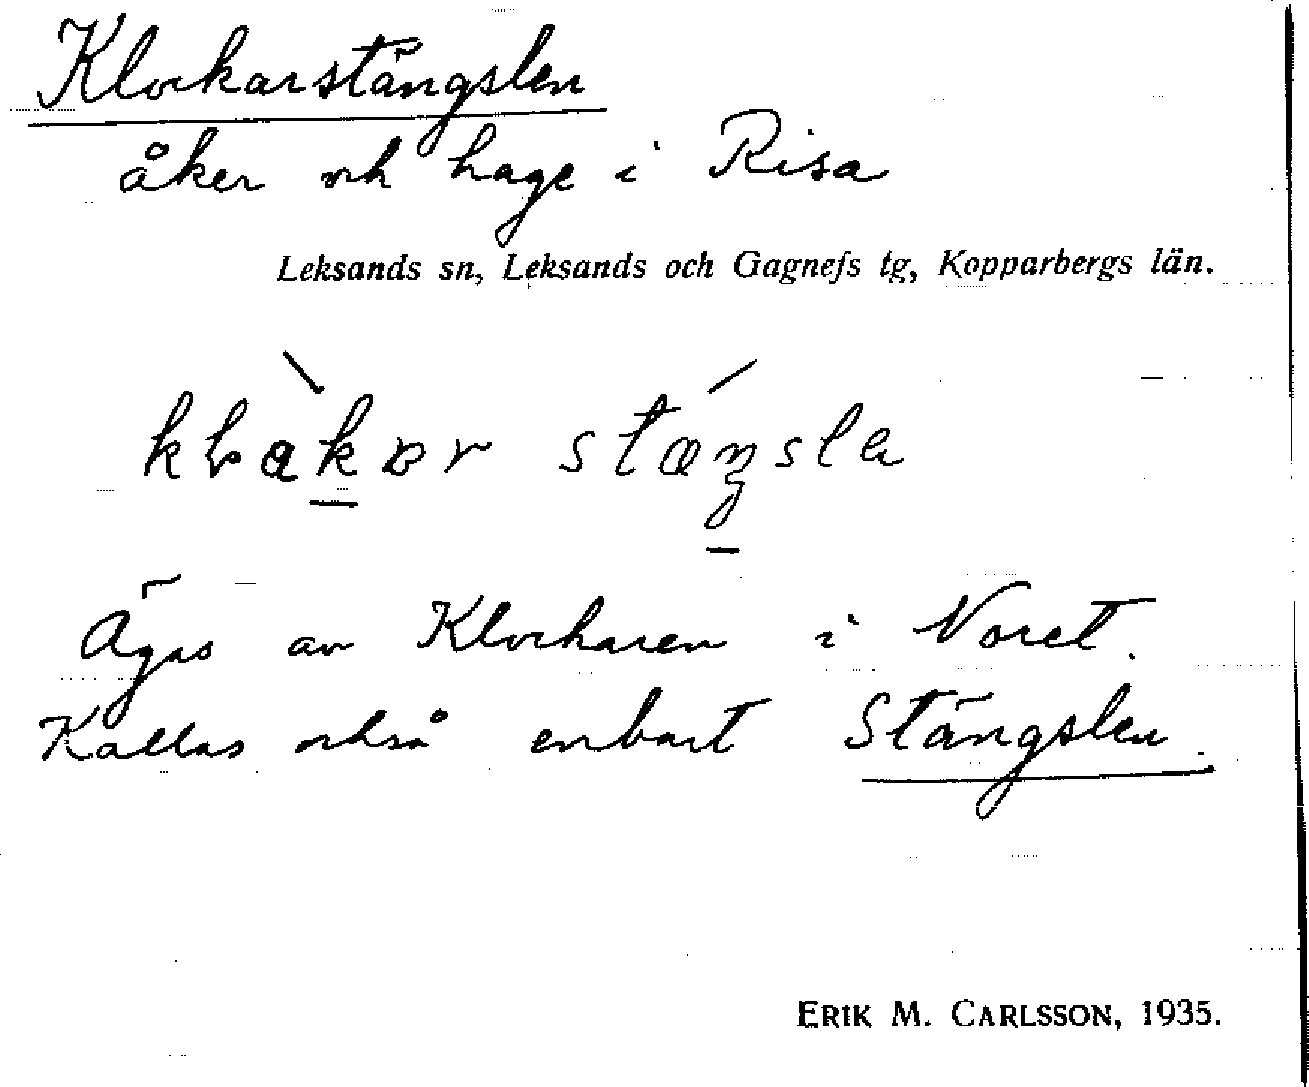 Klockarstängslen
åker och hage i Risa
Leksands sn, Leksands och Gagnefs tg, Kopparbergs län.
stæŋsla
Ägas av Klockaren i Noret.
Kallas också enbart Stängslen.
ERIK M. CARLSSON, 1935.